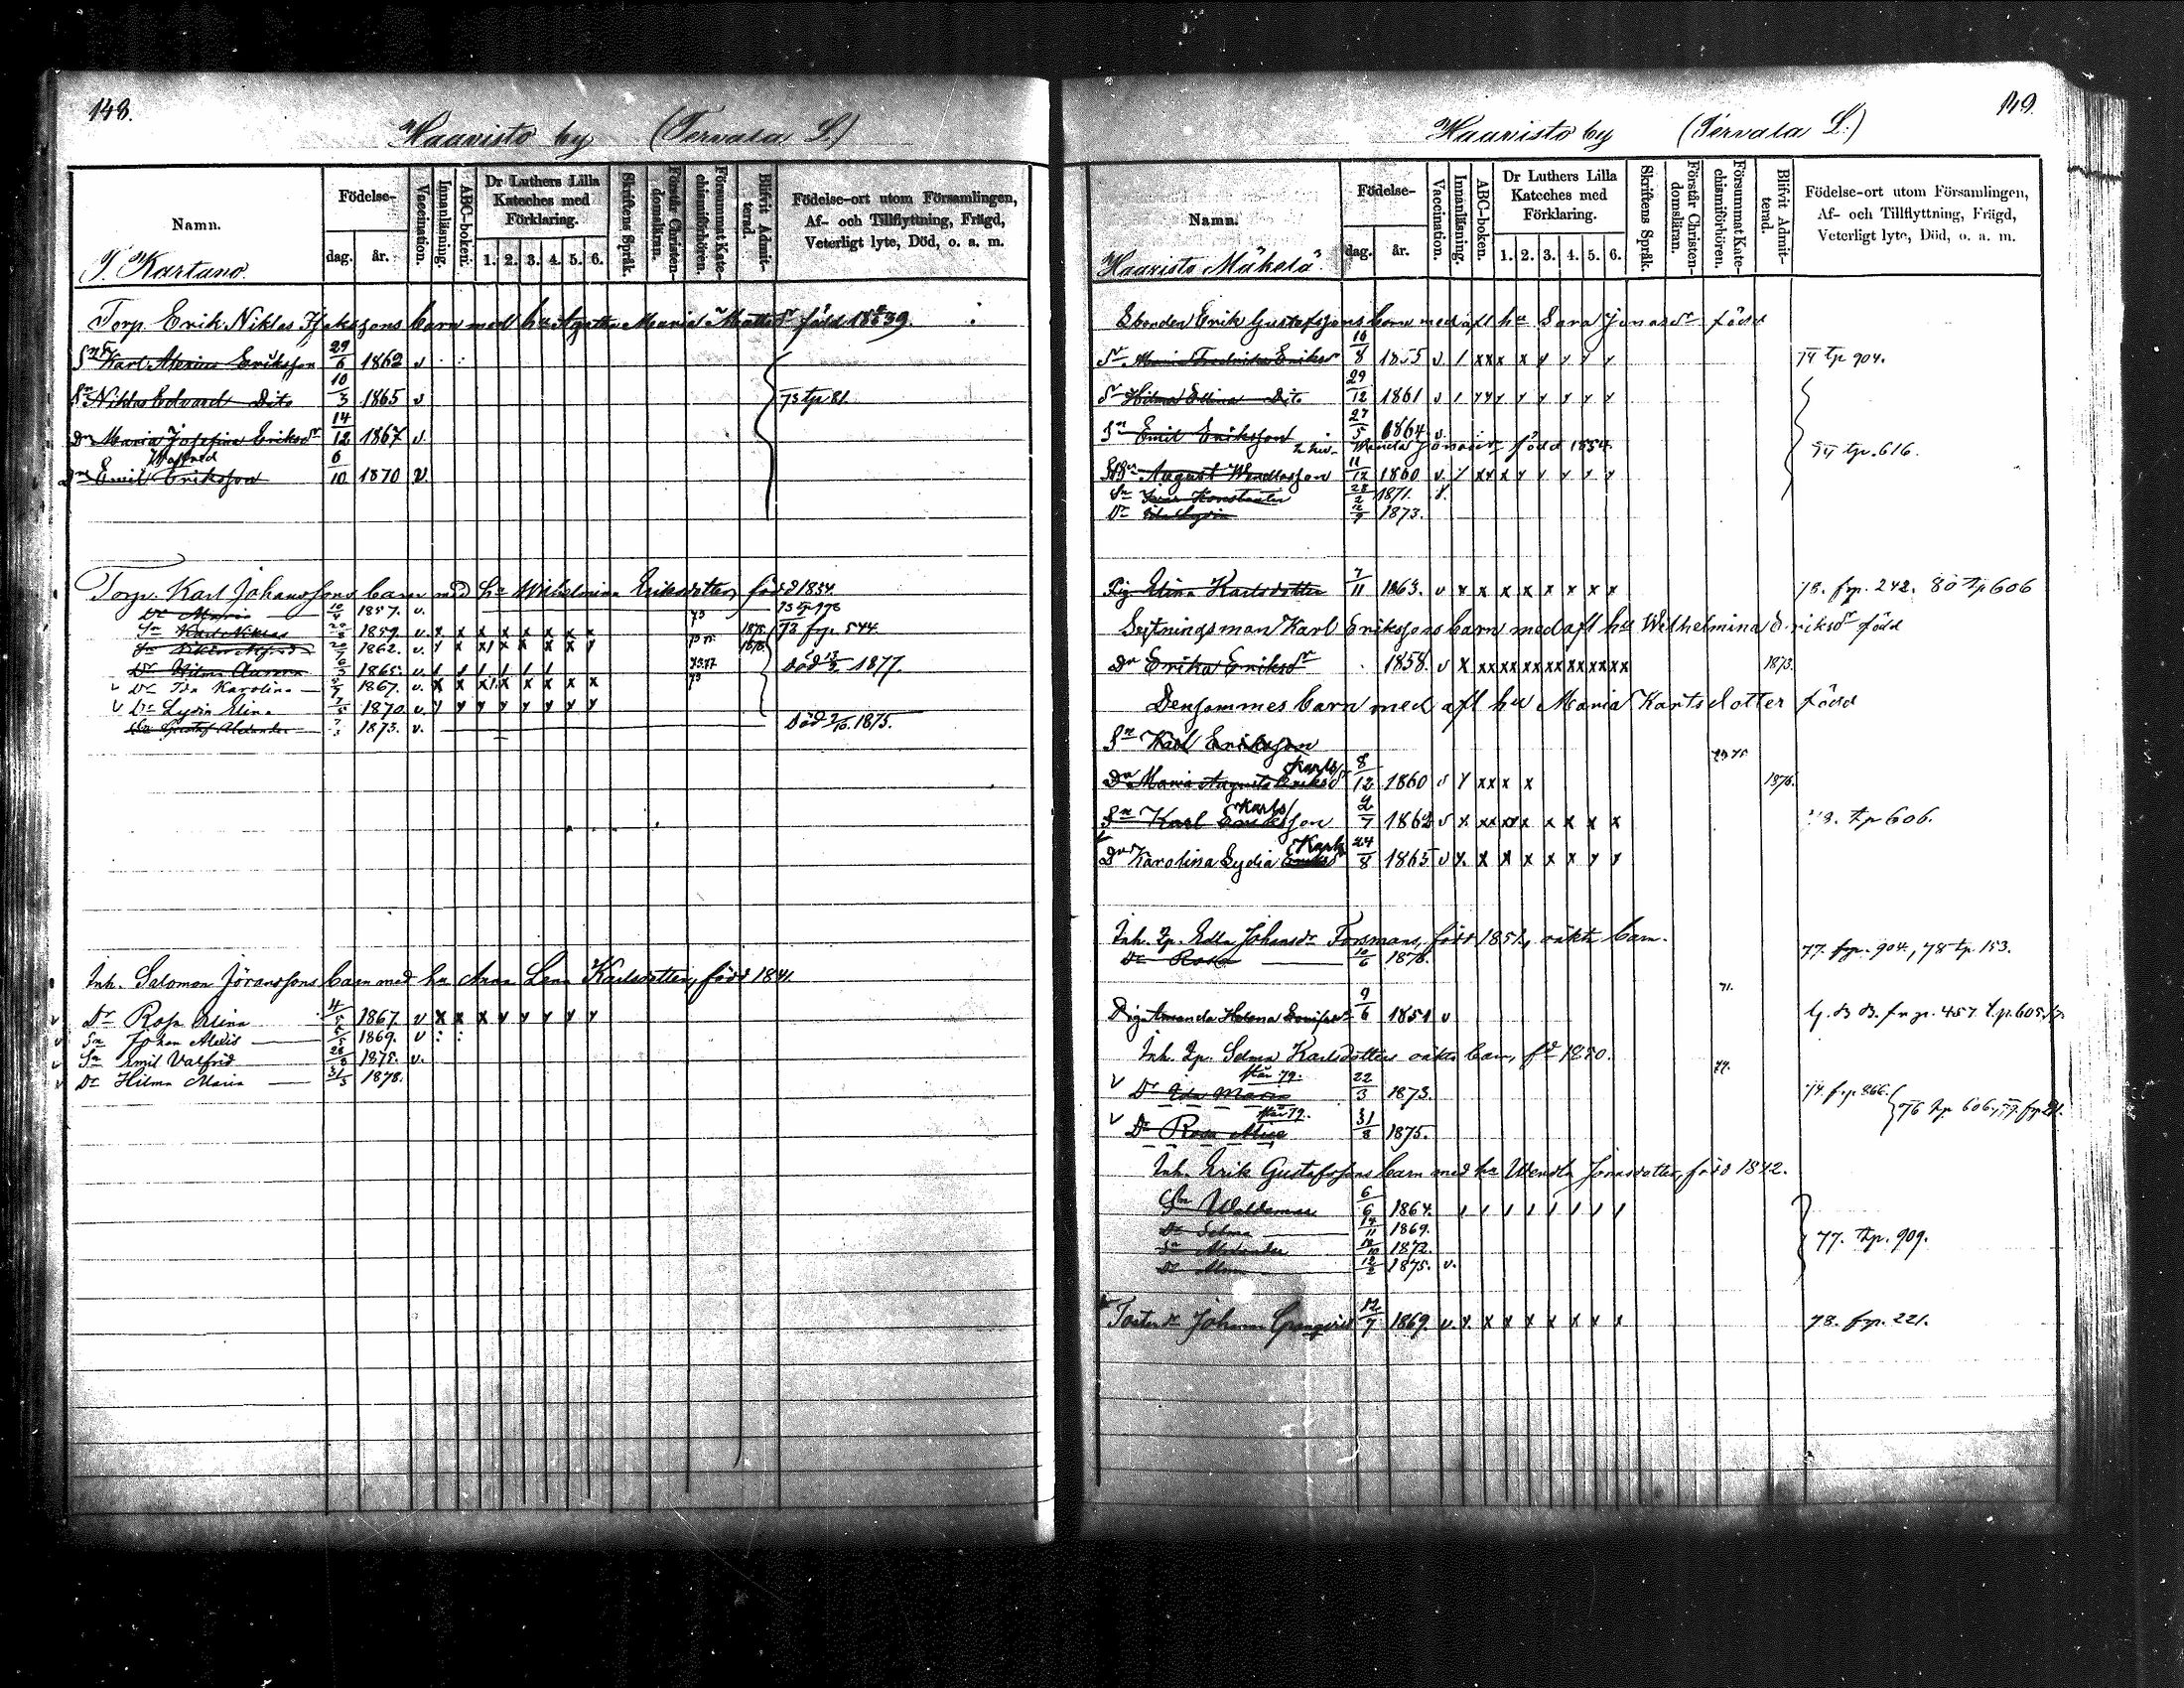 148.
Haavisto by (Tervala L.)
Namn.
Födelse-
dag. år.
Vaccination.
Innanläsning.
ABC-boken.
Dr Luthers Lilla Kateches med Förklaring.
1. 2. 3. 4. 5. 6.
Skriftens Språk.
Förstår Christendomsläran.
Försummat Katechismiförhören.
Blifvit Admitterad.
Födelse-ort utom Församlingen,
Af- och Tillflyttning, Frägd,
Veterligt lyte, Död, o. a. m.
T. Kartano.
Torp. Erik Niklas barn med hu Agatha Maria född 1839.
Sn Karl Eriksson 29/6 1862 v
Sn Niklas Edvard Dito 10/3 1865 v 73 tp 81.
Dr Maria Josefina Eriksdr 14/12 1867 v.
Walfred
Sn Emil Eriksson 6/10 1870 v.
Torp. Karl Johanssons barn med hu Wilhelmina Eriksdotter, född 1834.
Dr Maria 1857. v.
Sn Karl Niklas 1859. v. x x x x x x x x 1875. 73 frp. 544.
Sn 1862. v.
Dr Hilma Aurora 1865. v. Död 1877.
v Dr Ida Karolina 1867. v. x x x x x x x x 73
v Dr Lydia Elina 1870. v. y y y y y y y y
Sn Gustaf Alexander 1873. v. Död 1875.
Inh. Salomon Jöranssons barn med hu Anna Lena Karlsdotter, född 1841.
v Dr Rosa Alina 4/5 1867. v x x x y y y y y
v Sn Johan Alexis 5/5 1869. v
v Sn Emil Valfrid 28/8 1875. v.
v Dr Hilma Maria 31/3 1878.
149.
Haavisto by (Tervala L.)
Namn.
Födelse-
dag. år.
Vaccination.
Innanläsning.
ABC-boken.
Dr Luthers Lilla Kateches med Förklaring.
1. 2. 3. 4. 5. 6.
Skriftens Språk.
Förstår Christendomsläran.
Försummat Katechismiförhören.
Blifvit Admitterad.
Födelse-ort utom Församlingen,
Af- och Tillflyttning, Frägd,
Veterligt lyte, Död, o. a. m.
Haavisto Mäkelä.
Ebonden Erik Gustafssons barn med afl hu Sara Jonasdr född
Dr Maria Fredrika Eriksdr 16/8 1855 v / xx x y y y y 74 tp 904.
Dr Hilma Elina Dito 29/12 1861 v / yy y y y y y
Sn Emil Eriksson 27/5 1864 v.
Wendla Jonasdr född 1834.
August Wendlasson 11/12 1860 v. / xx x y y y y y tp. 616.
Sn Konstantin 28/2 1871. v.
Dr Lydia 12/9 1873.
Pig. Elina Karlsdotter 7/11 1863. v x x x x x x x x 78. frp. 242. 80 tp 606
Karl Erikssons barn med afl hu Wilhelmina Eriksdr född
Dr Erika Eriksdr 1858. v x xx xx xx xx xx xx xx 1873.
Densammes barn med afl hu Maria Karlsdotter född
Sn Karl Eriksson
Karls
Dr Maria Augusta Eriksdr 8/12 1860 v y xx x x 1876.
Karls
Sn Karl Eriksson 2/7 1862 v x xx xx x x x x 78. tp 606.
Karls
v Dr Karolina Lydia Eriksdr 24/8 1865 v y. x x x x x y y
Inh. Qp. Edla Johansdr Forsmans, född 1851, oäkta barn.
Dr Rosa 10/6 1876. 77. frp. 904, 78 tp. 153.
71.
Pig. Amanda Helena 9/6 1851 v
Inh. Qp. Selma Karlsdotters oäkta barn, fd 1850.
77.
v Dr Ida Maria 22/3 1873. 74. frp. 866.
v Dr Rosa Alice 31/8 1875. 76 tp 606,
Inh. Erik Gustafssons barn med hu Wendla Jonasdotter, född 1842.
Sn Waldemar 6/6 1864. / / / / / / / /
Dr Selma 14/11 1869.
Sn Alexander 12/10 1872. 77. tp. 909.
Dr Alma 12/2 1875. v.
Johan Granqvist 12/7 1869 v. y. x x x x x x x 78. frp. 221.